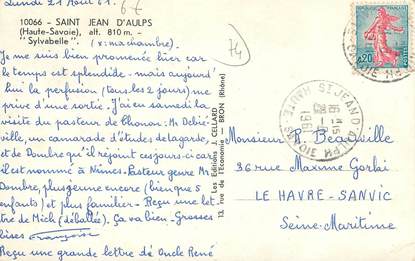 Lundi 21 Août 61.
6€
10066 - SAINT JEAN D'AULPS
(Haute-Savoie), alt. 810 m. -
" Sylvabelle " (x: ma chambre).
74
Je me suis bien promenée hier car
le temps est splendide - mais aujourd'
hui la perfusion (tous les 2 jours) me
prive d'une sortie. J'ai eu samedi la
visite du pasteur de Thonon: Mr Debié-
ville, un camarade d'études de Lagarde,
et de Doubre qu'il rejoint ces jours-ci car
il est nommé à Nîmes. Pasteur genre Mr
Doubre, plus jeune encore (bien que 5
enfants) et plus familier - Reçu une let
tre de Mich (déballée). Ça va bien. Grosses
bises Françoise
Reçu une grande lettre d'Oncle René
Les Editions CELLARD
13, rue de l'Economie BRON (Rhône)
0,20
ST JEAN D'AULPS
HAUTE-SAVOIE
Monsieur R. Beauville
36 rue Maxime Gorki
LE HAVRE-SANVIC
Seine-Maritime